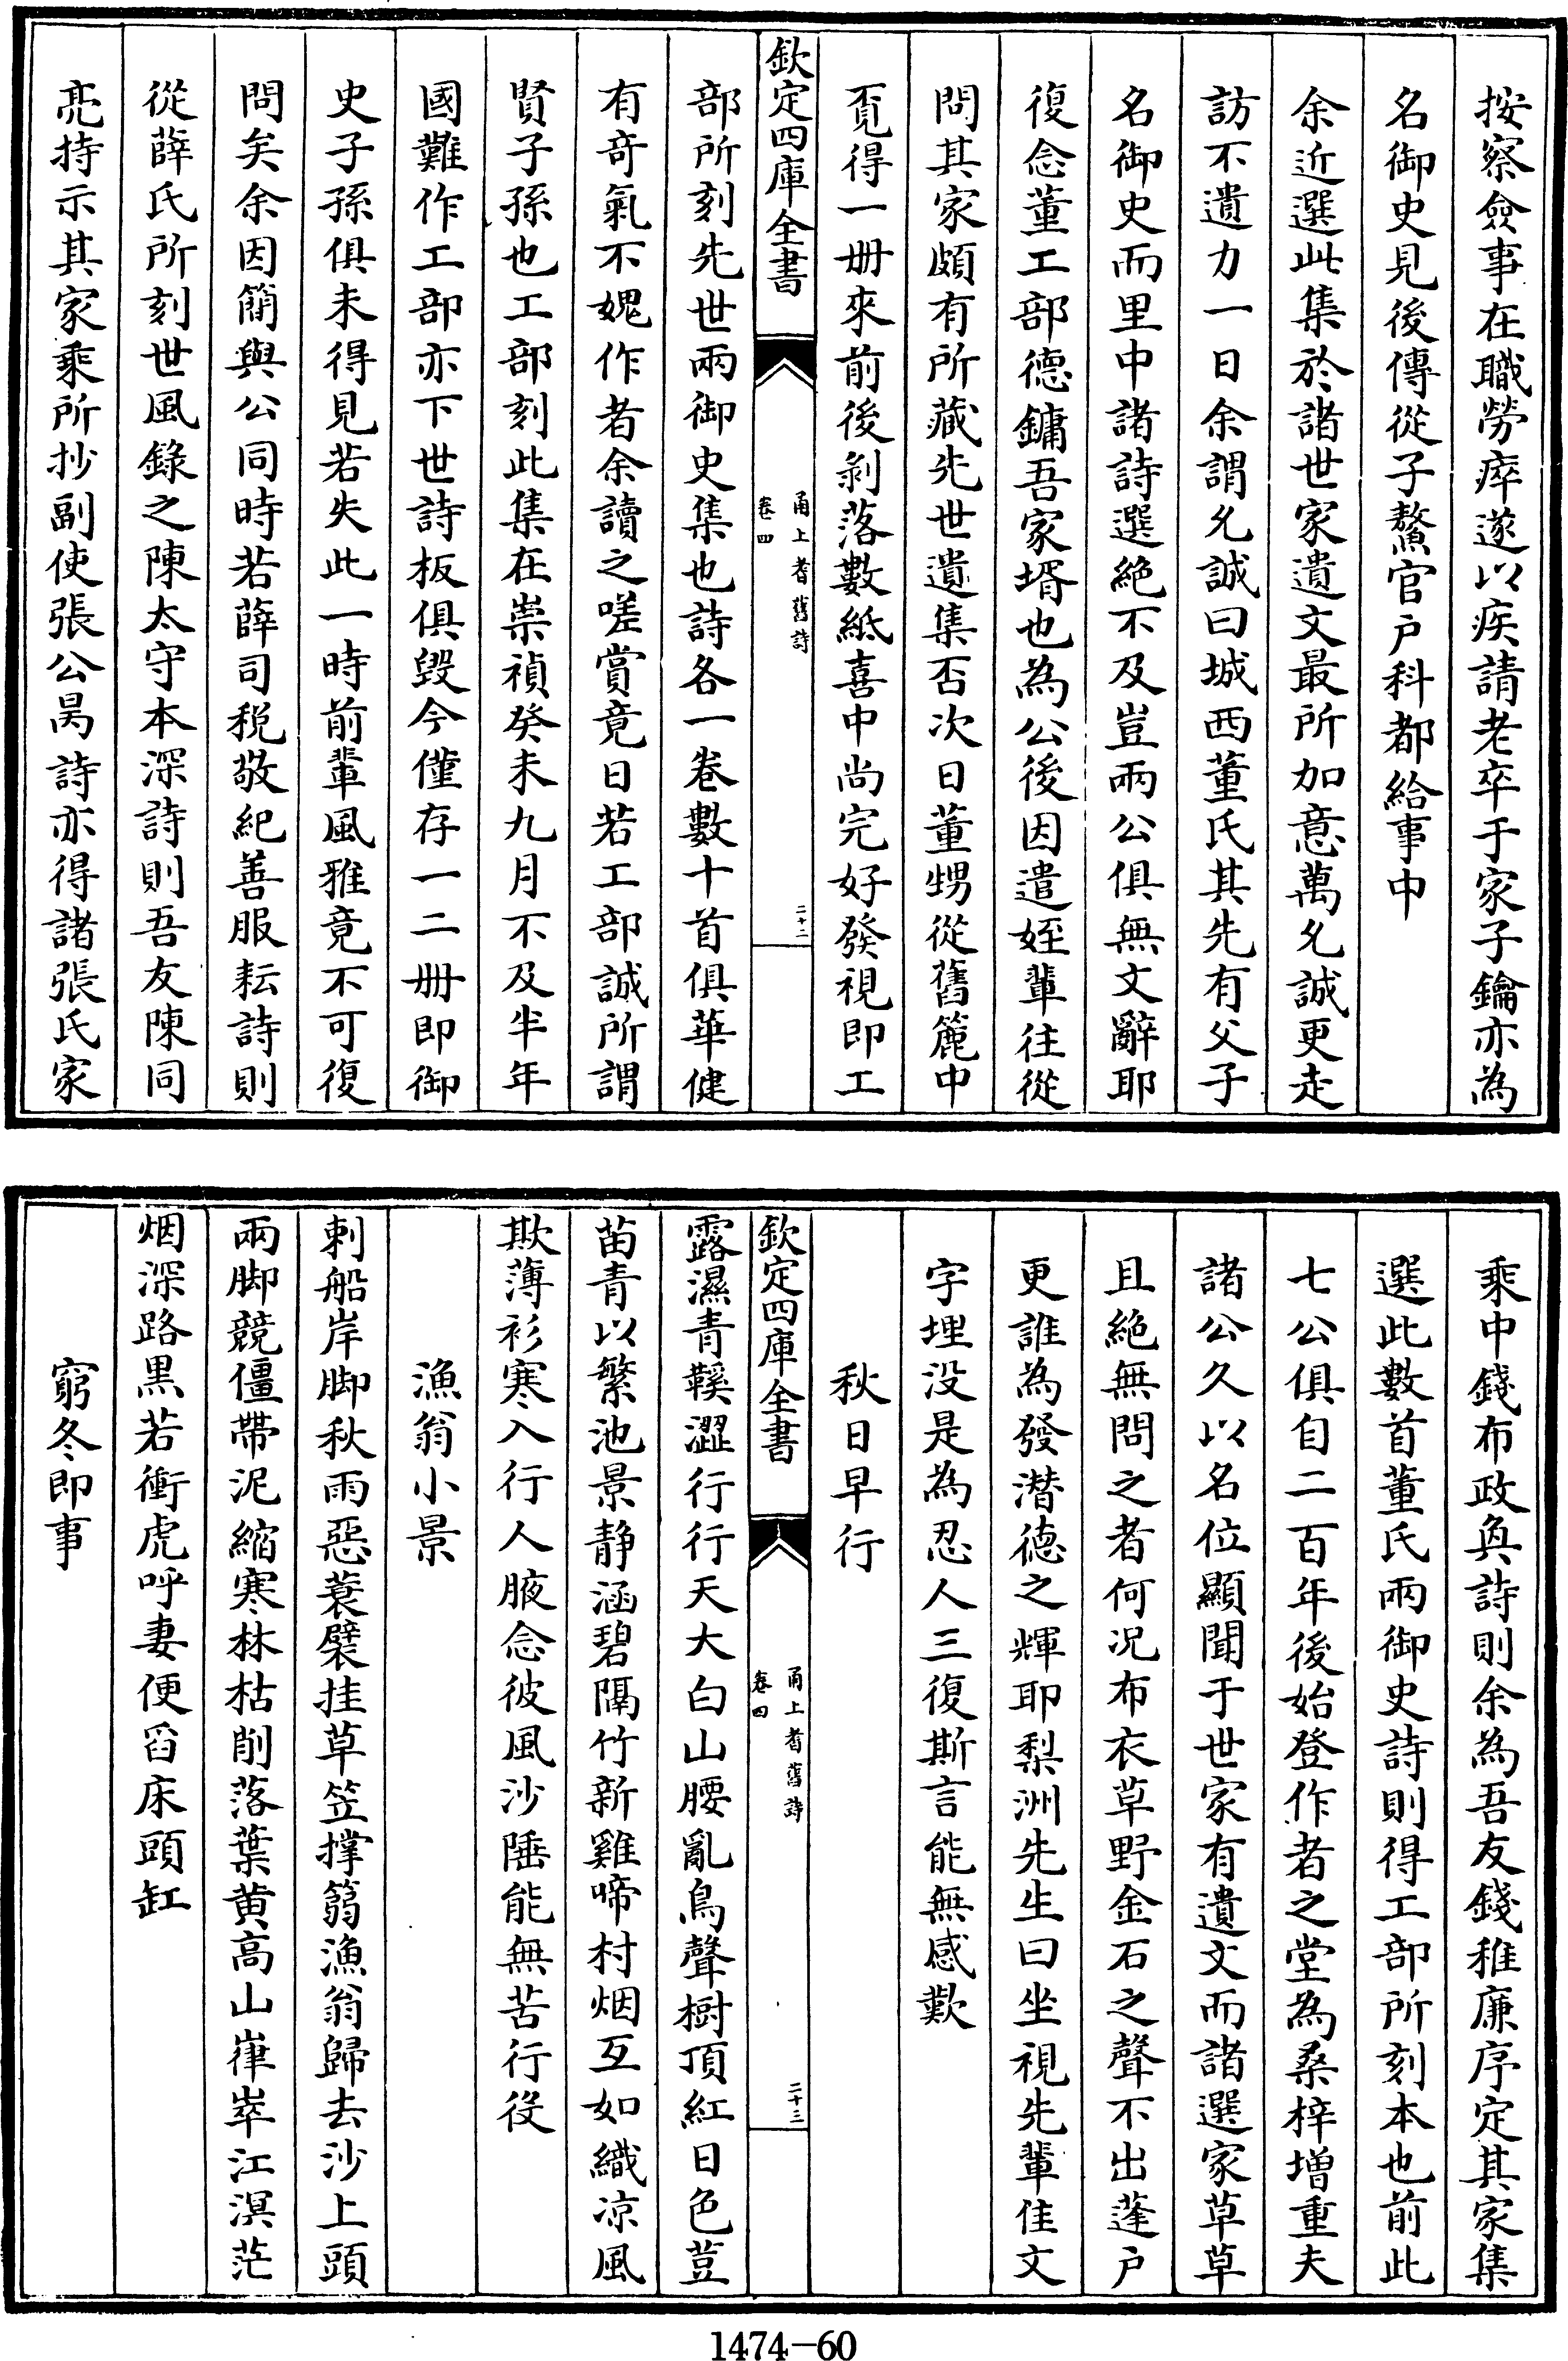 按察僉事在職勞瘁遂以疾請老卒于家子鑰亦為
名御史見後傳從子鰲官户科都給事中
余近選此集於諸世家遺文最所加意萬允誠更走
訪不遺力一日余謂允誠曰城西董氏其先有父子
名御史而里中諸詩選絶不及豈兩公俱無文辭耶
復念董工部德鏞吾家壻也為公後因遣姪輩往從
問其家頗有所藏先世遺集否次日董甥從舊簏中
覓得一册來前後剝落數紙喜中尚完好發視即工
欽定四庫全書
甬上耆舊詩
卷四
二十二
部所刻先世兩御史集也詩各一卷數十首俱華健
有奇氣不媿作者余讀之嗟賞竟日若工部誠所謂
賢子孫也工部刻此集在崇禎癸未九月不及半年
國難作工部亦下世詩板俱毁今僅存一二册即御
史子孫俱未得見若失此一時前輩風雅竟不可復
問矣余因簡與公同時若薛司税敬紀善服耘詩則
從薛氏所刻世風錄之陳太守本深詩則吾友陳同
亮持示其家乘所抄副使張公昺詩亦得諸張氏家
乘中錢布政奐詩則余為吾友錢稚廉序定其家集
選此數首董氏兩御史詩則得工部所刻本也前此
七公俱自二百年後始登作者之堂為桑梓增重夫
諸公久以名位顯聞于世家有遺文而諸選家草草
且絶無問之者何况布衣草野金石之聲不出蓬户
更誰為發潛德之輝耶梨洲先生曰坐視先輩佳文
字埋没是為忍人三復斯言能無感歎
秋日早行
欽定四庫全書
甬上耆舊詩
卷四
二十三
露濕青鞵澀行行天大白山腰亂鳥聲樹頂紅日色荳
苗青以繁池景静涵碧隔竹新雞啼村烟互如織凉風
欺薄衫寒入行人腋念彼風沙陲能無苦行役
漁翁小景
刺船岸脚秋雨惡蓑襞挂草笠撑篛漁翁歸去沙上頭
兩脚競僵帶泥縮寒林枯削落葉黄高山嵂崒江溟茫
烟深路黒若衝虎呼妻便舀床頭缸
窮冬即事
1474-60